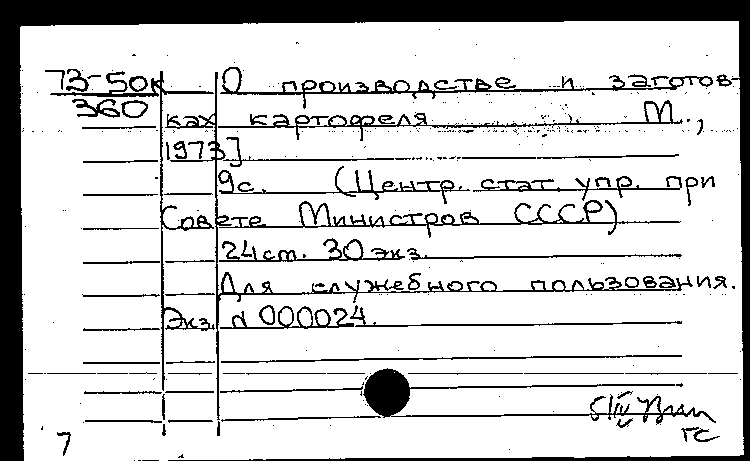 73-50к О производстве и заготов-
360 ках картофеля М.,
1973]
9с. (Центр. стат. упр. при
Совете Министров СССР)
24 ст. 30 экз.
Для служебного пользования.
Экз. № 000024.
ГС
7